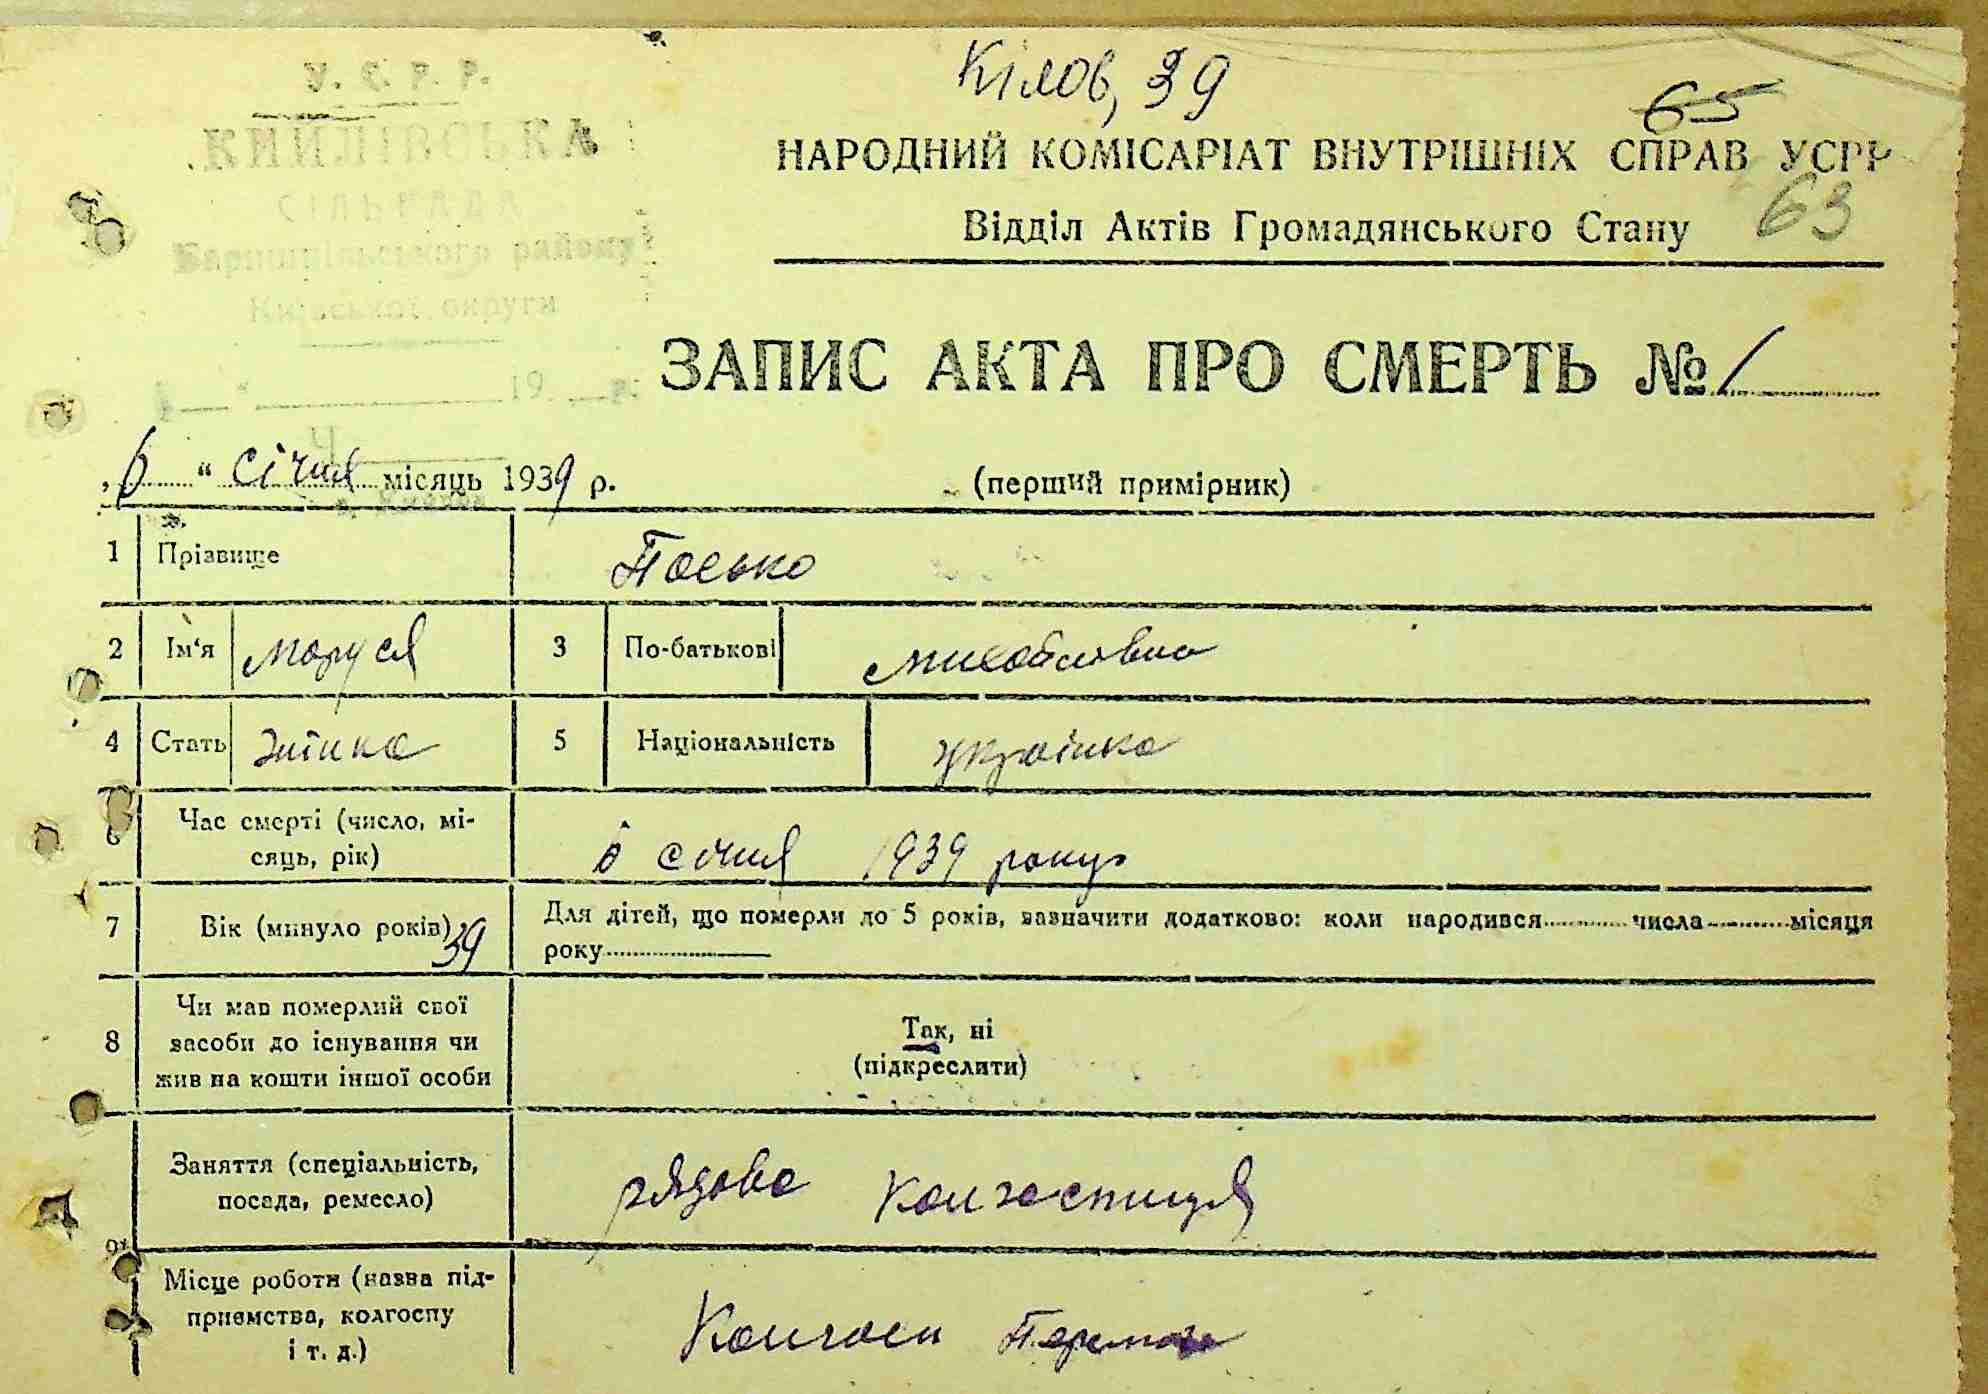 У. С. Р. Р.
КИЙЛІВСЬКА
СІЛЬРАДА
Бориспільського району
Київської округи
19 р.
Ч.
Кілов, 39
65
НАРОДНИЙ КОМІСАРІАТ ВНУТРІШНІХ СПРАВ УСРР
63
Відділ Актів Громадянського Стану
ЗАПИС АКТА ПРО СМЕРТЬ № 1
„6 “ січня місяць 1939 р.
(перший примірник)
1 Прізвище Посько
2 Ім'я Маруся 3 По-батькові Михайлівна
4 Стать жінка 5 Національність українка
6 Час смерті (число, мі-
сяць, рік) 6 січня 1939 року
7 Вік (минуло років) 39 Для дітей, що померли до 5 років, зазначити додатково: коли народився числа місяця
року
8 Чи мав померлий свої
засоби до існування чи
жив на кошти іншої особи
Так, ні
(підкреслити)
9 Заняття (спеціальність,
посада, ремесло) рядова колгоспниця
Місце роботи (назва під-
приємства, колгоспу
і т. д.) Колгосп Перемога